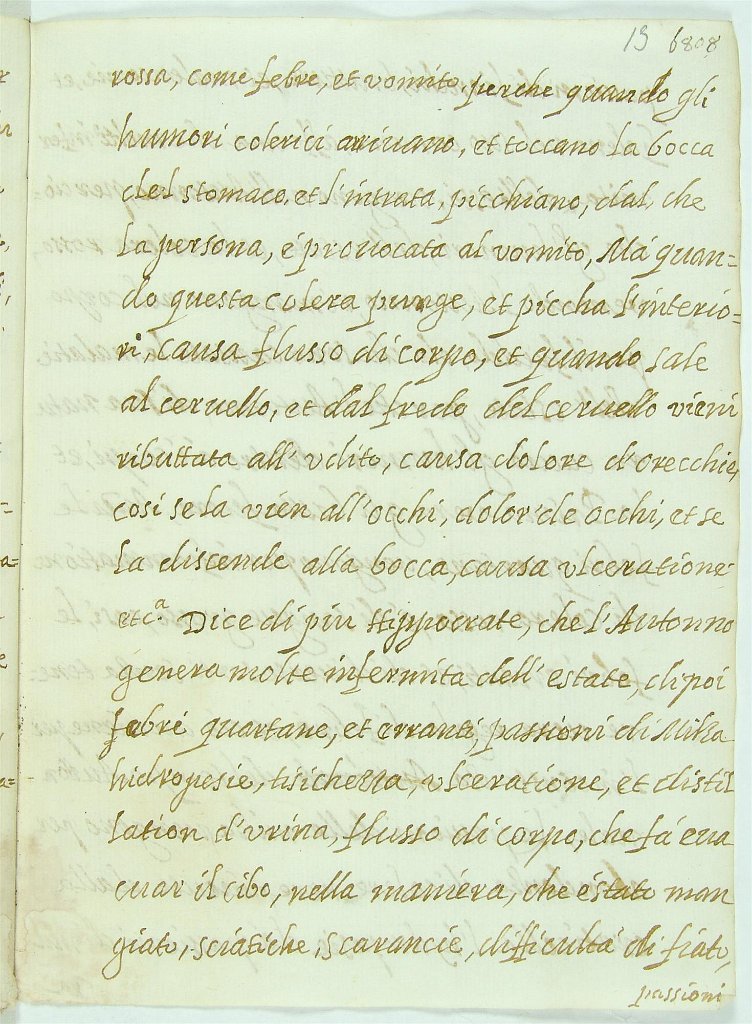 13 6808
rossa, come febre, et vomito, perche quando gli
humori colerici arriuano, et toccano la bocca
del stomaco, et l'intrata, picchiano, dal, che
la persona, é prouocata al vomito, Má quan=
do questa colera punge, et piccha l'interio=
ri, causa flusso di corpo, et quando sale
al ceruello, et dal fredo del ceruello vieni
ributtata all'udito, causa dolore d'orecchie,
cosi se la vien all'occhi, dolor'de occhi, et se
la discende alla bocca, causa vlceratione
etc.a Dice di piu Hippocrate, che l'Autonno
genera molte infermita dell'estate, dipoi
febri quartane, et erranti, passioni di Milza
hidropesie, tisichezza, vlceratione, et distil
lation d'vrina, flusso di corpo, che fá eua
cuar il cibo, nella maniera, che é stato man
giato, sciatiche, scarancie, difficulta di fiato,
passioni